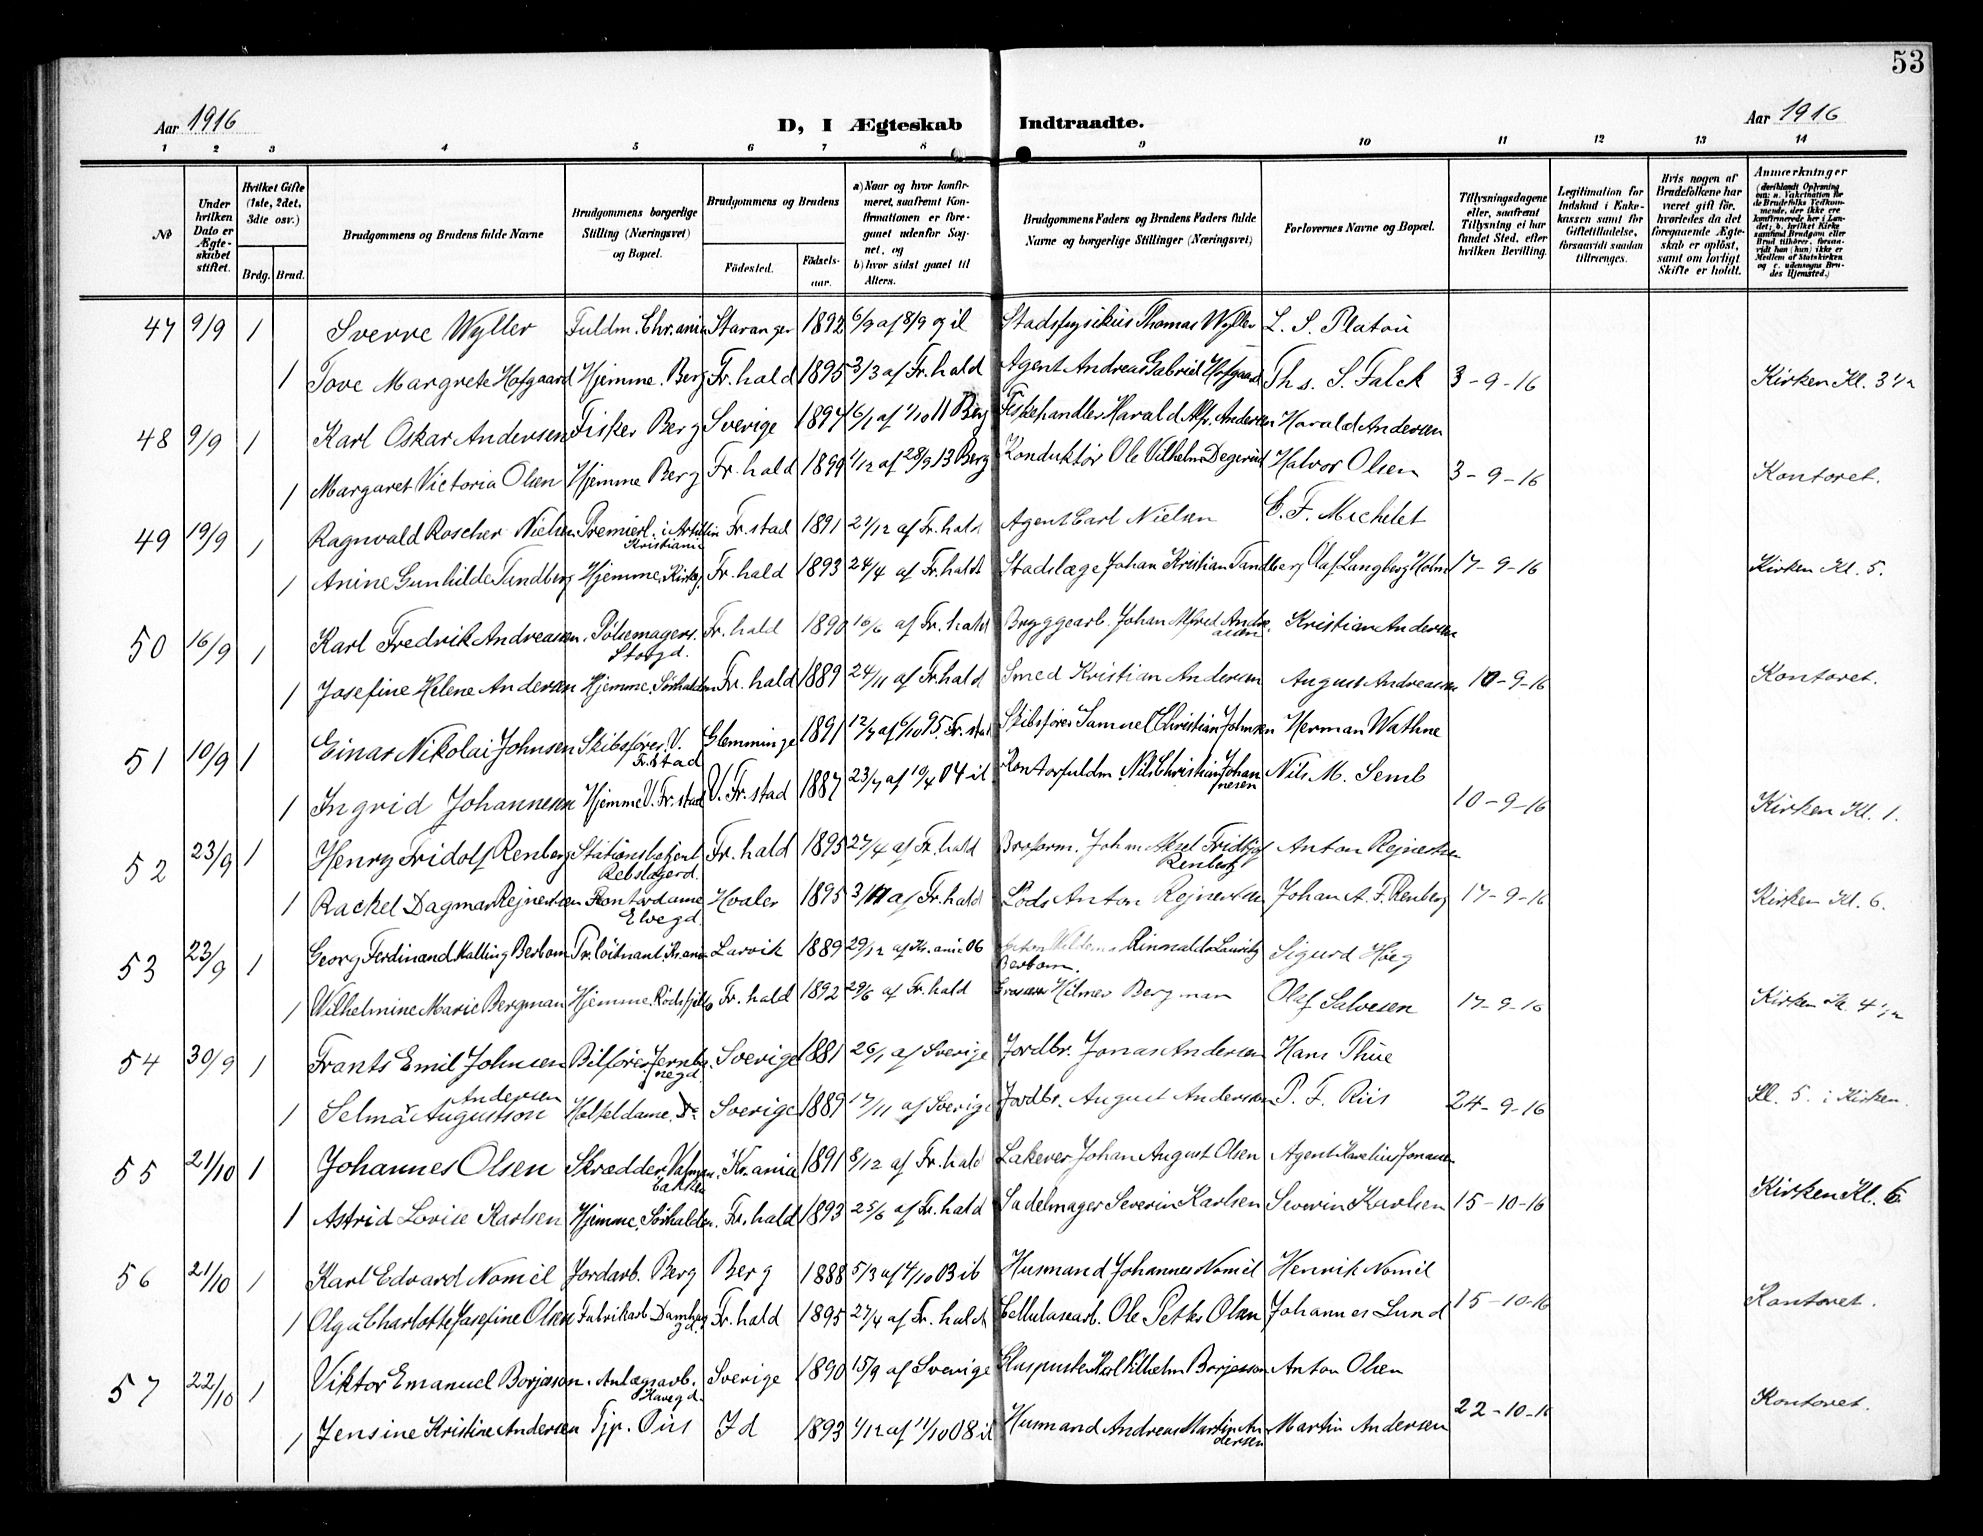 53
Aar 1916 D, I Ægteskab Indtraadte. Aar 1916
1 2 3 4 5 6 7 8 9 10 11 12 13 14
№
Under hvilken Dato er Ægteskabet stiftet.
Hvilket Gifte (1ste, 2det, 3die osv.)
Brdg. Brud.
Brudgommens og Brudens fulde Navne
Brudgommens borgerlige Stilling (Næringsvei) og Bopæl.
Brudgommens og Brudens
Födested. Födsels-aar.
a) Naar og hvor konfirmeret, saafremt Konfirmationen er foregaaet udenfor Sognet, og
b) hvor sidst gaaet til Alters.
Brudgommens Faders og Brudens Faders fulde Navne og borgerlige Stillinger (Næringsvei)
Forlovernes Navne og Bopæl.
Tillysningsdagene eller, saafremt Tillysning ei har fundet Sted, efter hvilken Bevilling.
Legitimation for Indskud i Enkekassen samt for Giftetilladelse, forsaavidt saadan tiltrænges.
Hvis nogen af Brudefolkene har været gift før, hvorledes da det foregaaende Ægteskab er opløst, samt om lovligt Skifte er holdt.
Anmerkninger
47 9/9 1 Sverre Wyller Fuldm. Chr.ania Stavanger 1892 6/9 af 8/9 og il Stadsfysikus Thomas Wyller L. S. Platou
1 Tove Margrete Hofgaard Hjemme. Berg Fr.hald 1895 3/3 af Fr.hald Agent Andreas Gabriel Hofgaard Ths. S. Falck 3-9-16 Kirken Kl. 3 1/2
48 9/9 1 Karl Oskar Andersen Fisker Berg Sverige 1894 Berg Fiskehandler Harald Alfr. Andersen Harald Andersen
1 Margaret Victoria Olsen Hjemme Berg Fr.hald 1899 1/12 af 28/9 13 Berg Konduktör Ole Vilhelm Degerud Halvor Olsen 3-9-16 Kontoret.
49 19/9 1 Ragnvald Roscher Nielsen Premierl. i Kristiania Fr.stad 1891 21/12 af Fr.hald Agent Carl Nielsen C. F. Michelet
1 Anine Gunhilde Tandberg Hjemme, Fr.hald 1893 24/4 af Fr.hald Stadslæge Johan Kristian Tandberg Olaf Langberg Holm 17-9-16 Kirken Kl. 5.
50 16/9 1 Karl Fredrik Andreassen Pölsemagers. Storgd. Fr.hald 1890 16/6 af Fr.hald Bryggearb. Johan Alfred Andreasen Kristian Andersen
1 Josefine Helene Andersen Hjemme, Sörhalden Fr.hald 1889 24/11 af Fr.hald Smed Kristian Andersen August Andreasen 10-9-16 Kontoret.
51 10/9 1 Einar Nikolai Johnsen Skibsförer. V. Fr.Stad Glemminge 1891 12/7 af 6/10 95. Fr.stad Skibsförer Samuel Christian Johnsen Herman Wathne
1 Ingrid Johannesen Hjemme V. Fr.stad V. Fr.stad 1887 23/7 af 10/4 04 il Kontorfuldm Nils Christian Johannesen Nils M. Semb 10-9-16 Kirken Kl. 1.
52 23/9 1 Henry Fridolf Renberg Stationsbetjent Rebslagerd. Fr.hald 1895 27/4 af Fr.hald Broform. Johan Aksel Fridtjof Renberg Anton Rejnertsen
1 Rackel Dagmar Rejnertsen Kontordame Elvegd Hvaler 1895 3/11 af Fr.hald Lods Anton Rejnertsen Johan A. F. Renberg 17-9-16 Kirken Kl. 6.
53 23/9 1 Georg Ferdinand Malling Berbom Pr.löitnant. Kr.ania Larvik 1889 29/12 af Kr.ania 06 Anton Rinnaldo Lauritz Berbom. Sigurd Höeg
1 Wilhelmine Marie Bergman Hjemme, Rödsfjeldt Fr.hald 1892 29/6 af Fr.hald Hilmer Bergman Olaf Salvesen 17-9-16 Kirken Kl. 4 1/2
54 30/9 1 Frants Emil Johnsen Bilförer Jernbanegd. Sverige 1881 26/1 af Sverige Jordbr. Jonas Andersen Hans Thue
1 Selma Augustson Andersen Sverige 1889 17/11 af Sverige Jordbr. August Andersson P. F. Riis 24-9-16 Kl. 5. i Kirken.
55 21/10 1 Johannes Olsen Skrædder, bakken Kr.ania 1891 8/12 af Fr.hald Lakerer Johan August Olsen Agent Jonasen
1 Astrid Lovise Karlsen Hjemme, Sörhalden. Fr.hald 1893 25/6 af Fr.hald Sadelmager Severin Karlsen Severin Karlsen 15-10-16 Kirken Kl. 6
56 21/10 1 Karl Edvard Nomél Jordarb. Berg Berg 1888 5/3 af 4/10 03 ib Husmand Johannes Nomél Henrik Nomél
1 Olga Charlotte Josefine Olsen Fabrikarb Damhaugd. Fr.hald 1895 27/4 af Fr.hald Cellulosearb. Ole Petter Olsen Johannes Lund 15-10-16 Kontoret.
57 22/10 1 Viktor Emanuel Borjesson. Anlægsarb. Havegd. Sverige 1890 15/9 af Sverige Glaspuster Karl Vilhelm Borjesson Anton Olsen
1 Jensine Kristine Andersen Tjp. Öiis Id 1893 1/12 af 11/10 08 il Husmand Andreas Martin Andersen Martin Andersen 22-10-16 Kontoret.